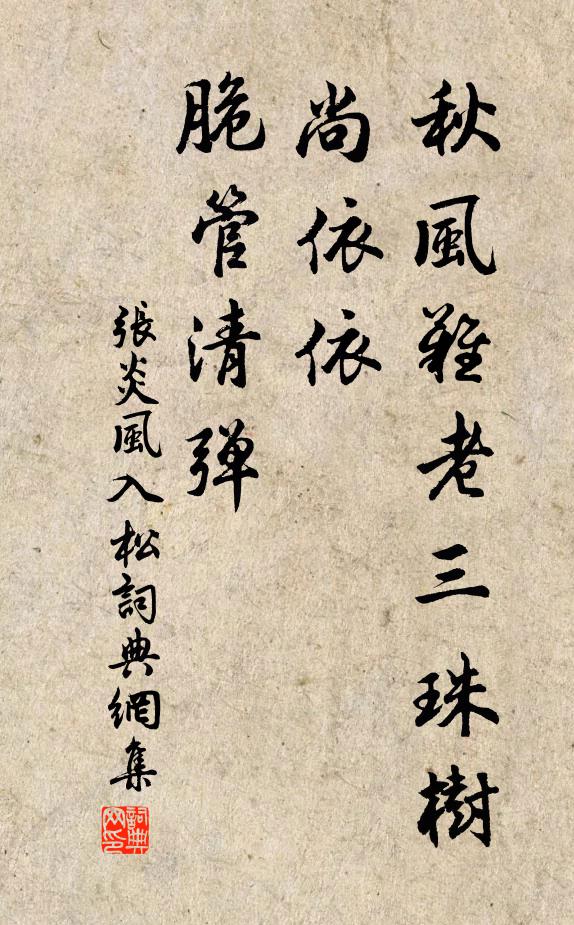 秋風難老三珠樹
尚依依
脆管清弹
張炎風入松詞典網集
詞典网印